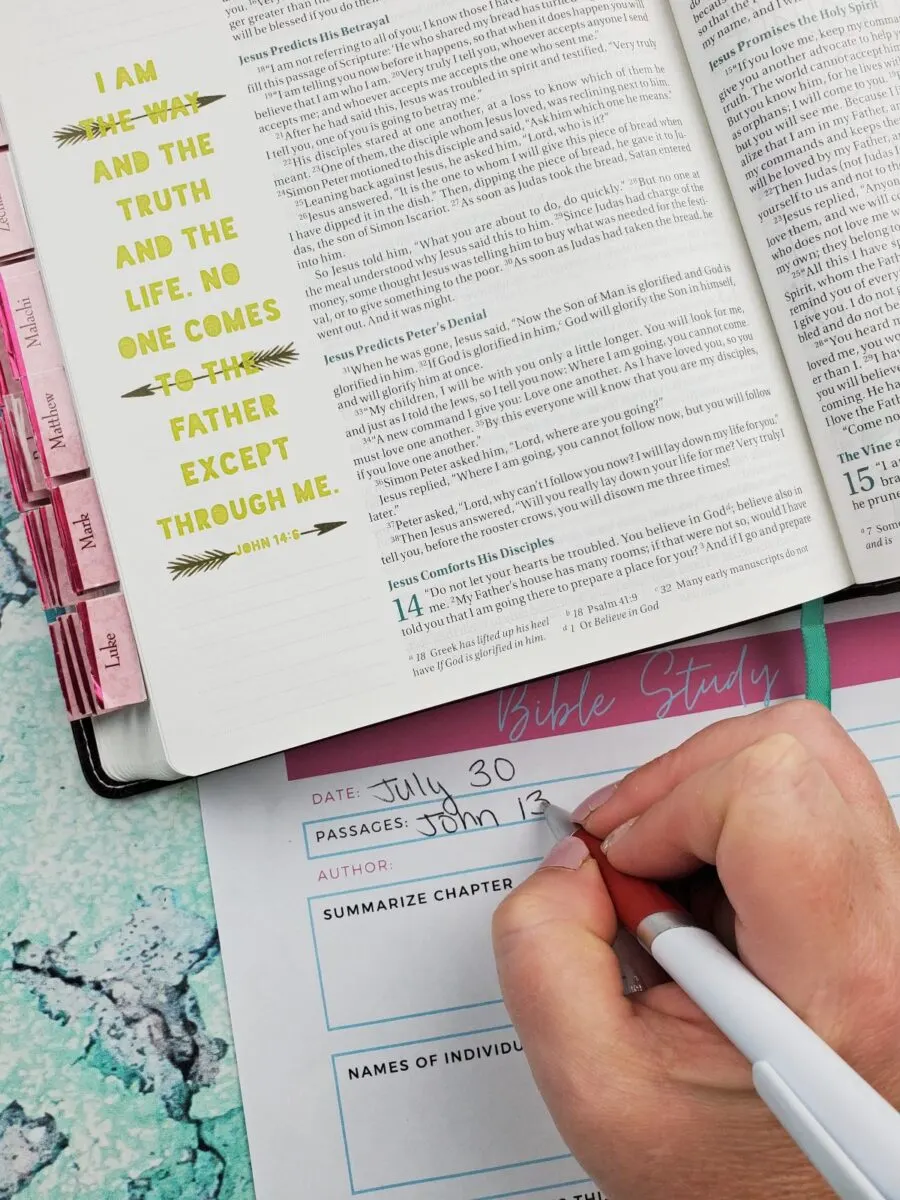 Zecha
Malachi
Matthew
Mark
Luke
I AM
THE WAY
AND THE
TRUTH
AND THE
LIFE. NO
ONE COMES
TO THE
FATHER
EXCEPT
THROUGH ME.
JOHN 14:6
ger greater than the
will be blessed if you do them
Jesus Predicts His Betrayal
18“I am not referring to all of you; I know those I have
fill this passage of Scripture: ‘He who shared my bread has turned
19“I am telling you now before it happens, so that when it does happen you will
believe that I am who I am. 20Very truly I tell you, whoever accepts anyone I send
accepts me; and whoever accepts me accepts the one who sent me.”
21After he had said this, Jesus was troubled in spirit and testified, “Very truly
I tell you, one of you is going to betray me.”
22His disciples stared at one another, at a loss to know which of them he
meant. 23One of them, the disciple whom Jesus loved, was reclining next to him.
24Simon Peter motioned to this disciple and said, “Ask him which one he means.”
25Leaning back against Jesus, he asked him, “Lord, who is it?”
26Jesus answered, “It is the one to whom I will give this piece of bread when
I have dipped it in the dish.” Then, dipping the piece of bread, he gave it to Ju-
das, the son of Simon Iscariot. 27As soon as Judas took the bread, Satan entered
into him.
So Jesus told him, “What you are about to do, do quickly.” 28But no one at
the meal understood why Jesus said this to him. 29Since Judas had charge of the
money, some thought Jesus was telling him to buy what was needed for the festi-
val, or to give something to the poor. 30As soon as Judas had taken the bread, he
went out. And it was night.
Jesus Predicts Peter’s Denial
31When he was gone, Jesus said, “Now the Son of Man is glorified and God is
glorified in him. 32If God is glorified in him,c God will glorify the Son in himself,
and will glorify him at once.
33“My children, I will be with you only a little longer. You will look for me,
and just as I told the Jews, so I tell you now: Where I am going, you cannot come.
34“A new command I give you: Love one another. As I have loved you, so you
must love one another. 35By this everyone will know that you are my disciples,
if you love one another.”
36Simon Peter asked him, “Lord, where are you going?”
Jesus replied, “Where I am going, you cannot follow now, but you will follow
later.”
37Peter asked, “Lord, why can’t I follow you now? I will lay down my life for you.”
38Then Jesus answered, “Will you really lay down your life for me? Very truly I
tell you, before the rooster crows, you will disown me three times!
Jesus Comforts His Disciples
14 “Do not let your hearts be troubled. You believe in Godd; believe also in
me. 2My Father’s house has many rooms; if that were not so, would I have
told you that I am going there to prepare a place for you? 3And if I go and prepare
a 18 Greek has lifted up his heel b 18 Psalm 41:9 c 32 Many early manuscripts do not
have If God is glorified in him. d 1 Or Believe in God
so that the
my name, and I w
Jesus Promises the Holy Spirit
15“If you love me, keep my comma
give you another advocate to help y
truth. The world cannot accept him
But you know him, for he lives with
as orphans; I will come to you.
but you will see me. Because I l
alize that I am in my Father, an
my commands and keeps the
will be loved by my Father, an
22Then Judas (not Judas I
yourself to us and not to th
23Jesus replied, “Anyon
love them, and we will co
who does not love me w
my own; they belong to
25“All this I have s
Spirit, whom the Fath
remind you of every
I give you. I do not g
bled and do not be
28“You heard m
loved me, you wo
er than I. 29I ha
you will believe
coming. He ha
I love the Fath
“Come no
The Vine a
15 “I a
bra
he prune
a 7 Some
and is
Bible Study
DATE: July 30
PASSAGES: John 13
AUTHOR:
SUMMARIZE CHAPTER
NAMES OF INDIVIDU